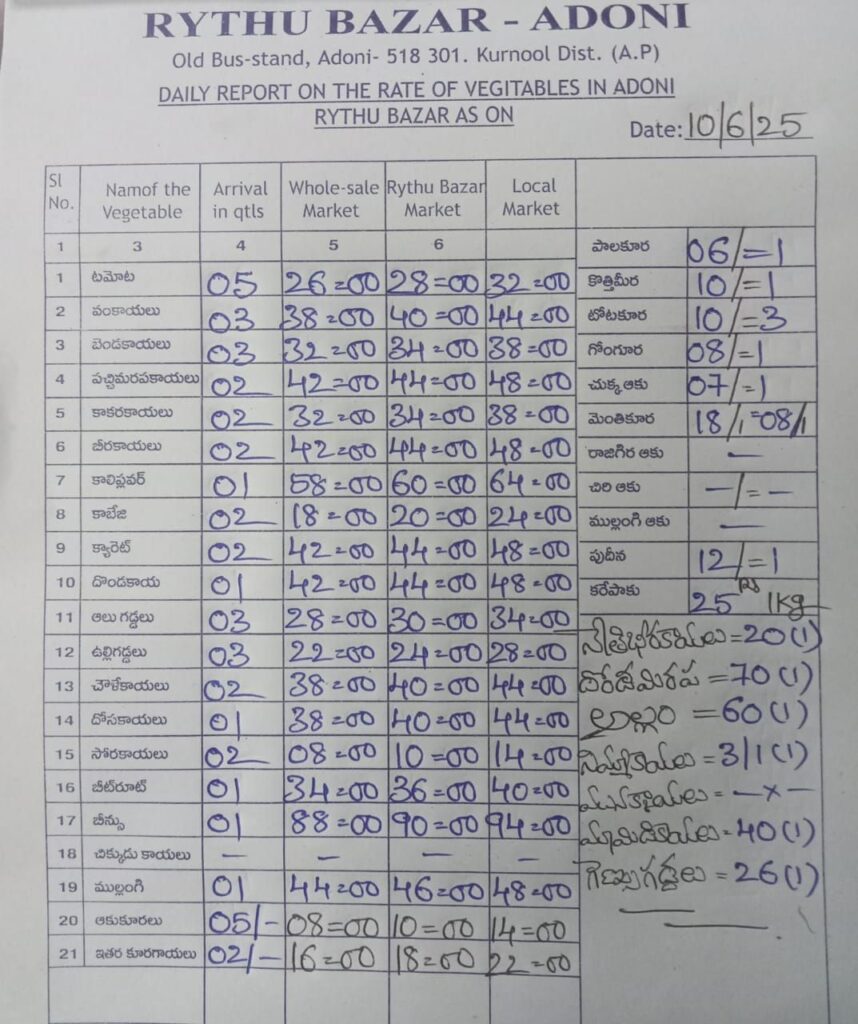 RYTHU BAZAR - ADONI
Old Bus-stand, Adoni- 518 301. Kurnool Dist. (A.P)
DAILY REPORT ON THE RATE OF VEGITABLES IN ADONI
RYTHU BAZAR AS ON
Date: 10/6/25
Sl No. Namof the Vegetable Arrival in qtls Whole-sale Market Rythu Bazar Market Local Market
1 3 4 5 6
1 టమోట 05 26=00 28=00 32=00
2 వంకాయలు 03 38=00 40=00 44=00
3 బెండకాయలు 03 32=00 34=00 38=00
4 పచ్చిమరపకాయలు 02 42=00 44=00 48=00
5 కాకరకాయలు 02 32=00 34=00 38=00
6 బీరకాయలు 02 42=00 44=00 48=00
7 కాలిఫ్లవర్ 01 58=00 60=00 64=00
8 కాబేజి 02 18=00 20=00 24=00
9 క్యారెట్ 02 42=00 44=00 48=00
10 దొండకాయ 01 42=00 44=00 48=00
11 ఆలు గడ్డలు 03 28=00 30=00 34=00
12 ఉల్లిగడ్డలు 03 22=00 24=00 28=00
13 చౌళేకాయలు 02 38=00 40=00 44=00
14 దోసకాయలు 01 38=00 40=00 44=00
15 సోరకాయలు 02 08=00 10=00 14=00
16 బీట్‌రూట్ 01 34=00 36=00 40=00
17 బీన్సు 01 88=00 90=00 94=00
18 చిక్కుడు కాయలు — — — —
19 ముల్లంగి 01 44=00 46=00 48=00
20 ఆకుకూరలు 05/- 08=00 10=00 14=00
21 ఇతర కూరగాయలు 02/- 16=00 18=00 22=00
పాలకూర 06/=1
కొత్తిమీర 10/=1
టోటకూర 10/=3
గోంగూర 08/=1
చుక్క ఆకు 07/=1
మెంతికూర 18/1=08/1
రాజగిర ఆకు —
చిరి ఆకు —/=—
ముల్లంగి ఆకు —
పుదీన 12/=1
కరేపాకు 25 Rs 1Kg
నేతిబీరకాయలు =20(1)
=70(1)
అల్లం =60(1)
నిమ్మకాయలు =3/1(1)
మునక్కాయలు = -x-
మామిడికాయలు =40(1)
గెణుసుగడ్డలు =26(1)